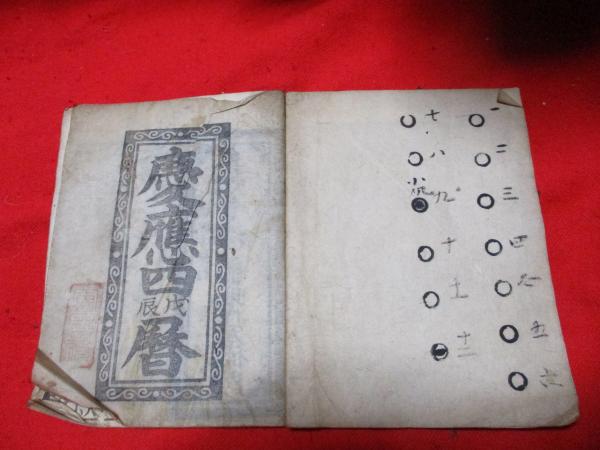 慶應四
戊辰
暦
一
二
三
四
五
六
七
八
小
九
十
十一
十二